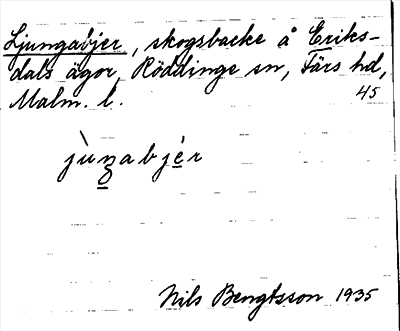 Ljungabjer, skogsbacke å Eriks-
dals ägor, Röddinge sn, Färs hd,
Malm. l. 45
jùŋabjér
Nils Bengtsson 1935